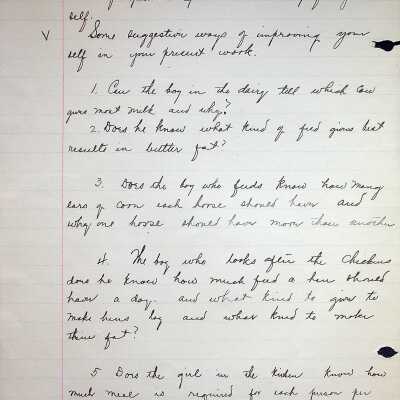 self.
V Some suggestion ways of improving your
self in your present work.
1. Can the boy in the dairy tell which cow
gives most milk and why?
2. Does he know what kind of feed gives best
results in butter fat?
3. Does the boy who feeds know how many
ears of corn each horse should have and
why one horse should have more than another
4. The boy who looks after the chickens
does he know how much feed a hen should
have a day. and what kind to give to
make hens lay and what kind to make
them fat?
5 Does the girl in the kitchen know how
much meal is required for each person per